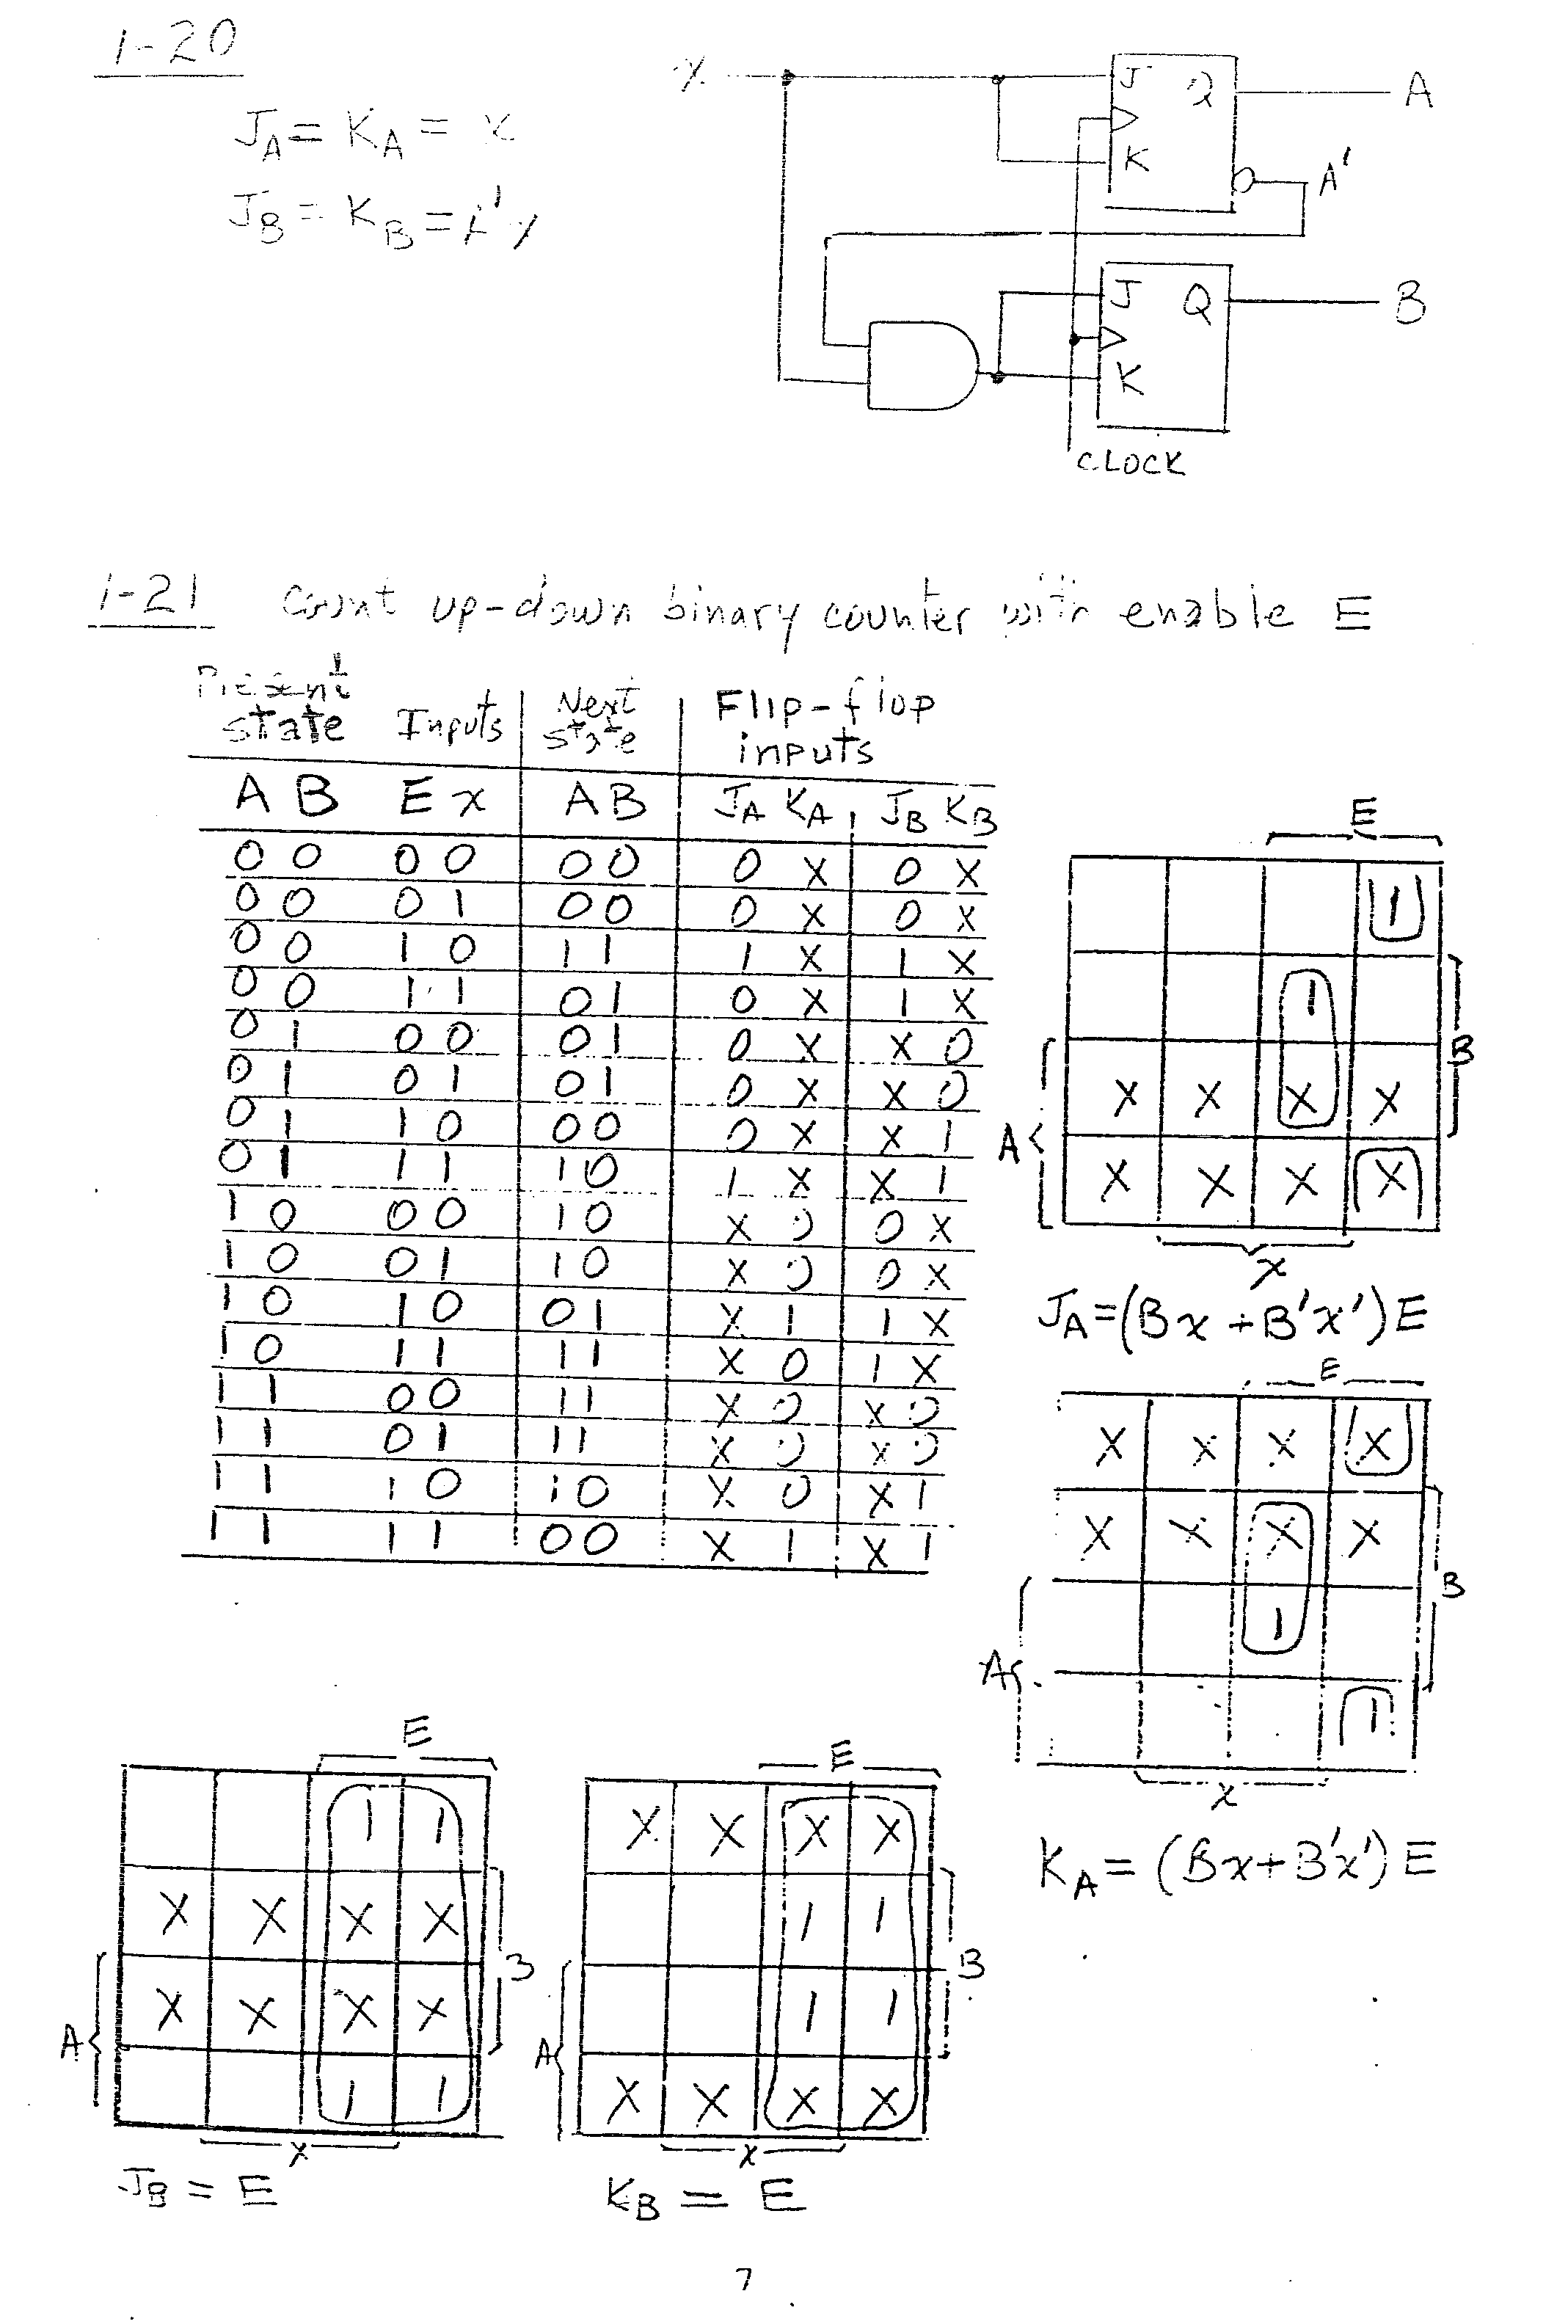 1-20
J_A = K_A = x
J_B = K_B =
x
J Q A
K A'
J Q B
K
CLOCK
1-21 Count up-down binary counter with enable E
Present state Inputs Next state Flip-flop inputs
A B E x A B J_A K_A J_B K_B
0 0 0 0 0 0 0 X 0 X
0 0 0 1 0 0 0 X 0 X
0 0 1 0 1 1 1 X 1 X
0 0 1 1 0 1 0 X 1 X
0 1 0 0 0 1 0 X X 0
0 1 0 1 0 1 0 X X 0
0 1 1 0 0 0 0 X X 1
0 1 1 1 1 0 1 X X 1
1 0 0 0 1 0 X 0 0 X
1 0 0 1 1 0 X 0 0 X
1 0 1 0 0 1 X 1 1 X
1 0 1 1 1 1 X 0 1 X
1 1 0 0 1 1 X 0 X 0
1 1 0 1 1 1 X 0 X 0
1 1 1 0 1 0 X 0 X 1
1 1 1 1 0 0 X 1 X 1
E
1
1
B
X X X X
A
X X X X
x
J_A = (Bx + B'x')E
E
X X X X
X X X X
B
1
A
1
x
K_A = (Bx + B'x')E
E
1 1
X X X X
B
X X X X
A
1 1
x
J_B = E
E
X X X X
1 1
B
1 1
A
X X X X
x
K_B = E
7